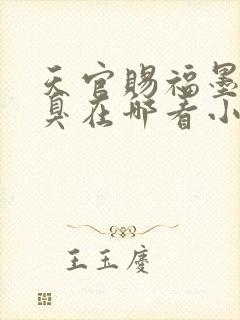 天官赐福墨
臭在哪看小
王玉庆